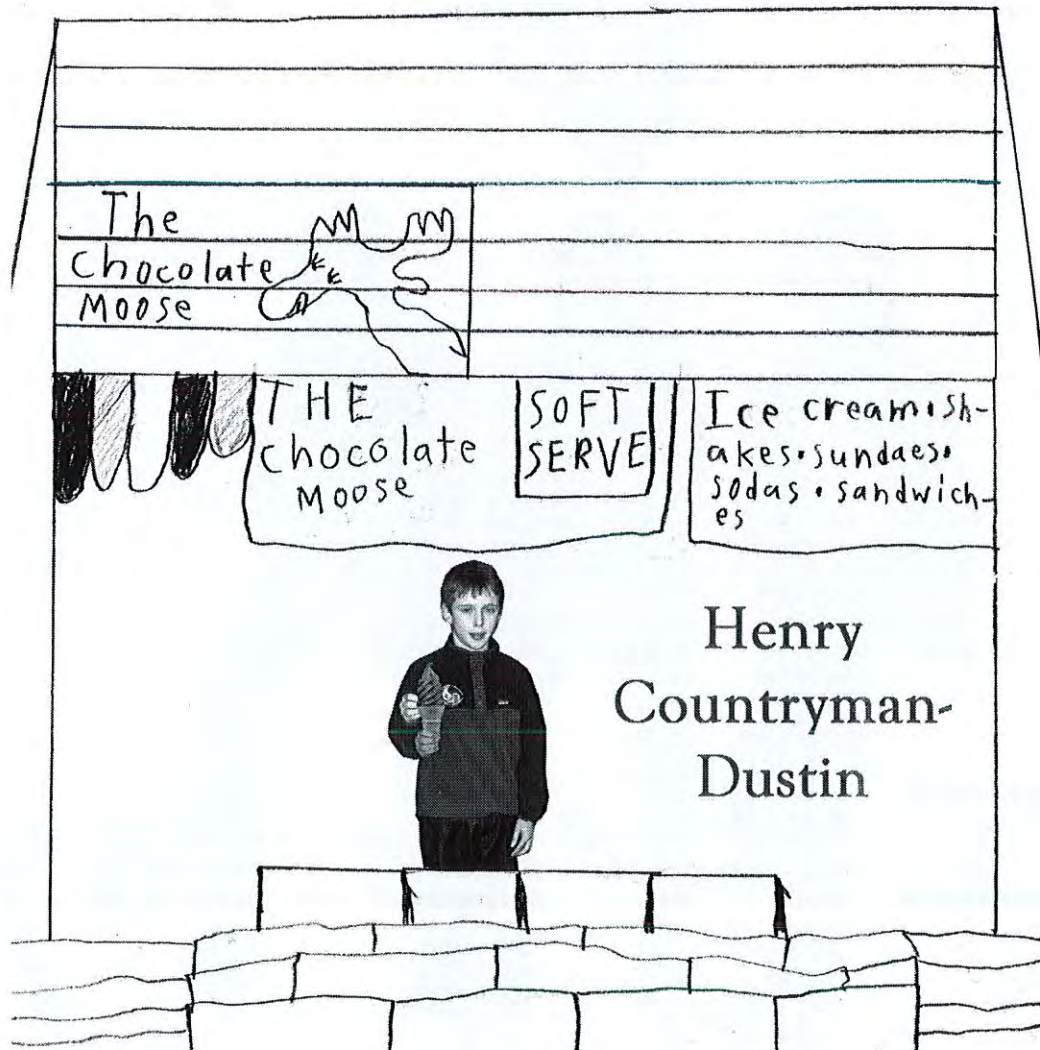 The
Chocolate
Moose
THE
Chocolate
Moose
SOFT
SERVE
Ice cream•sh-
akes•sundaes•
sodas•sandwich-
es
Henry
Countryman-
Dustin